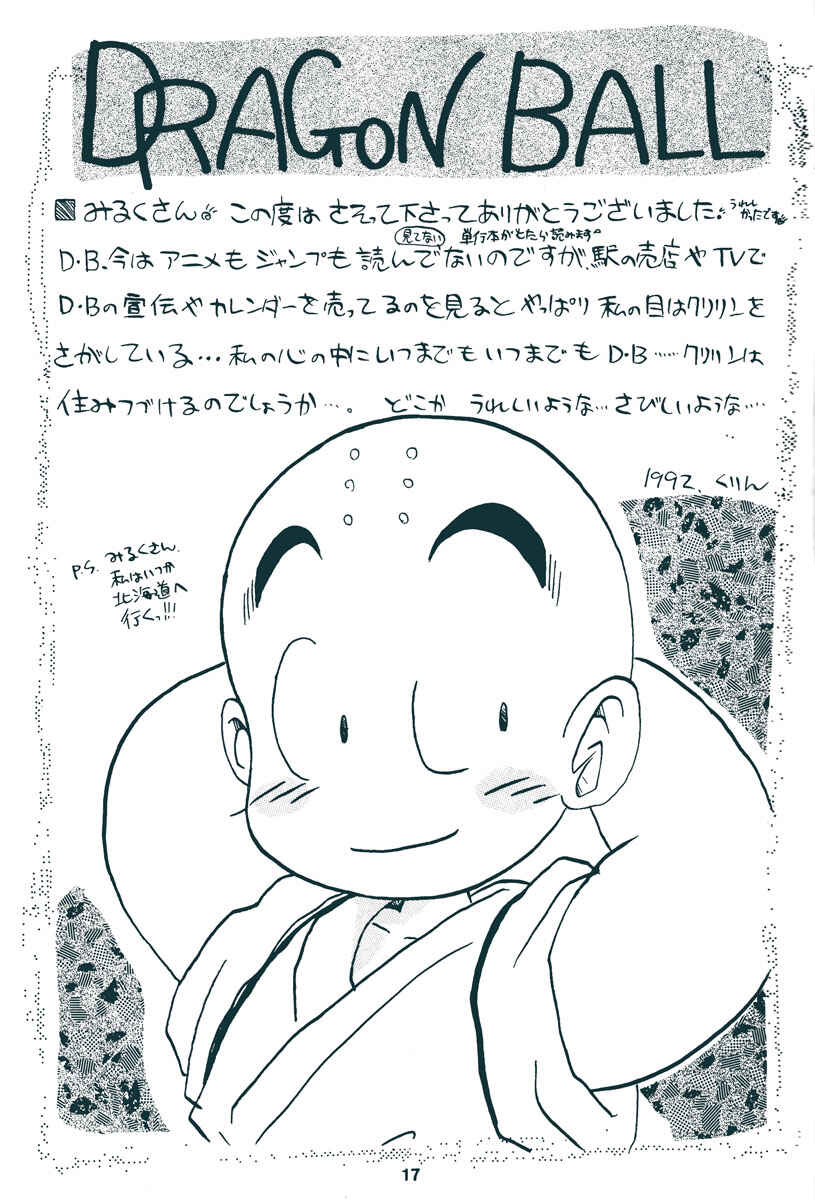 DRAGON BALL
みるくさん この度は さそって下さってありがとうございました! うれしかったです
見てない 単行本がでたら読みます。
D・B、今は アニメも ジャンプも 読んでないのですが、駅の売店や TVで
D・Bの宣伝や カレンダーを売ってるのを見ると やっぱり 私の目はクリリンを
さがしている… 私の心の中にいつまでも いつまでも D・B…… クリリンは
住みつづけるのでしょうか…。 どこか うれしいような… さびしいような…
1992. くりん
P.S. みるくさん.
私はいつか
北海道へ
行くっ!!!
17